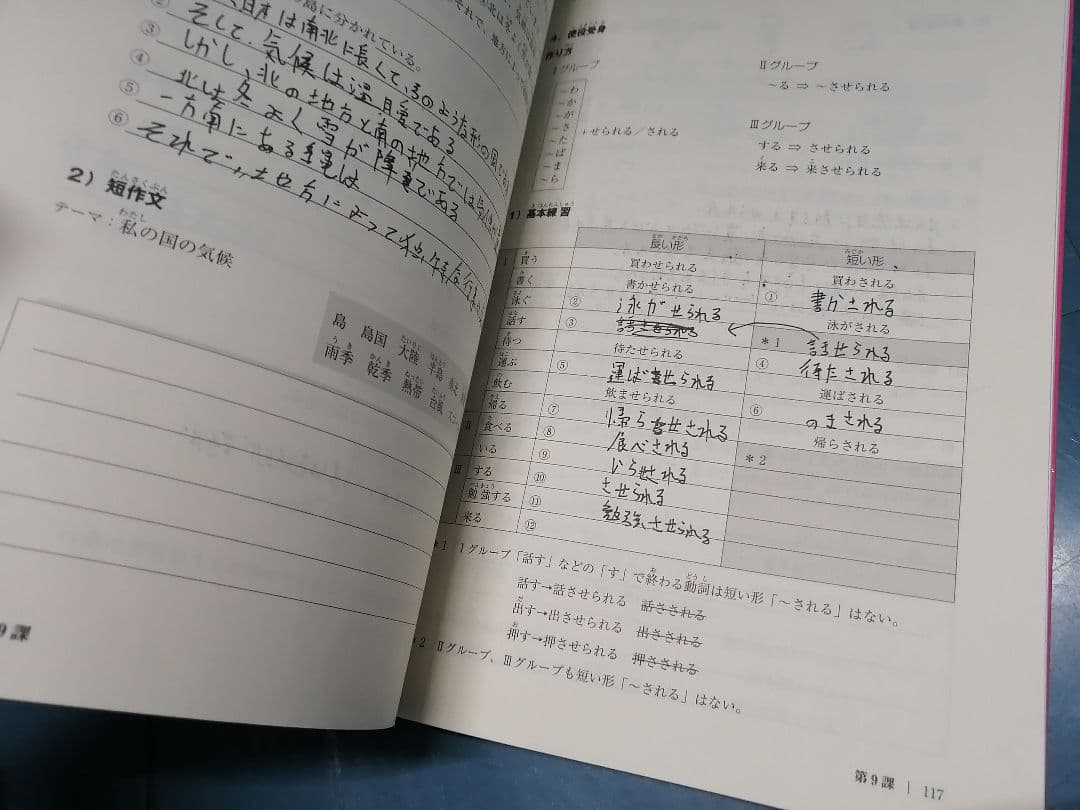 島に分かれている。
② 日本は南北に長くて、
③ そして、気候は温暖である
④ しかし、北の地方と南の地方では
⑤ 北は冬よく雪が降
⑥ 一方南にある
それで、地方によって
2）短作文
たんさくぶん
テーマ：私の国の気候
わたし
島 島国 大陸 半島
雨季 乾季 熱帯 台風
9課
4．使役受身
作り方
Ⅰグループ
～わ
～か
～が
～さ
～た
～ば
～ま
～ら
+せられる／される
Ⅱグループ
～る ⇒ ～させられる
Ⅲグループ
する ⇒ させられる
来る ⇒ 来させられる
1）基本練習
長い形 短い形
Ⅰ 買う 買わせられる 買わされる
書く 書かせられる ① 書かされる
泳ぐ ② 泳がせられる 泳がされる
話す ③ *1
待つ 待たせられる ④ 待たされる
運ぶ ⑤ 運ばせられる 運ばされる
飲む 飲ませられる ⑥ のまされる
帰る ⑦ 帰らせされる 帰らされる
Ⅱ 食べる ⑧ 食べされる *2
いる ⑨
Ⅲ する ⑩ させられる
勉強する ⑪ 勉強させられる
来る ⑫
*1 Ⅰグループ「話す」などの「す」で終わる動詞は短い形「～される」はない。
話す→話させられる 話さされる
出す→出させられる 出さされる
押す→押させられる 押さされる
*2 Ⅱグループ、Ⅲグループも短い形「～される」はない。
第9課 | 117